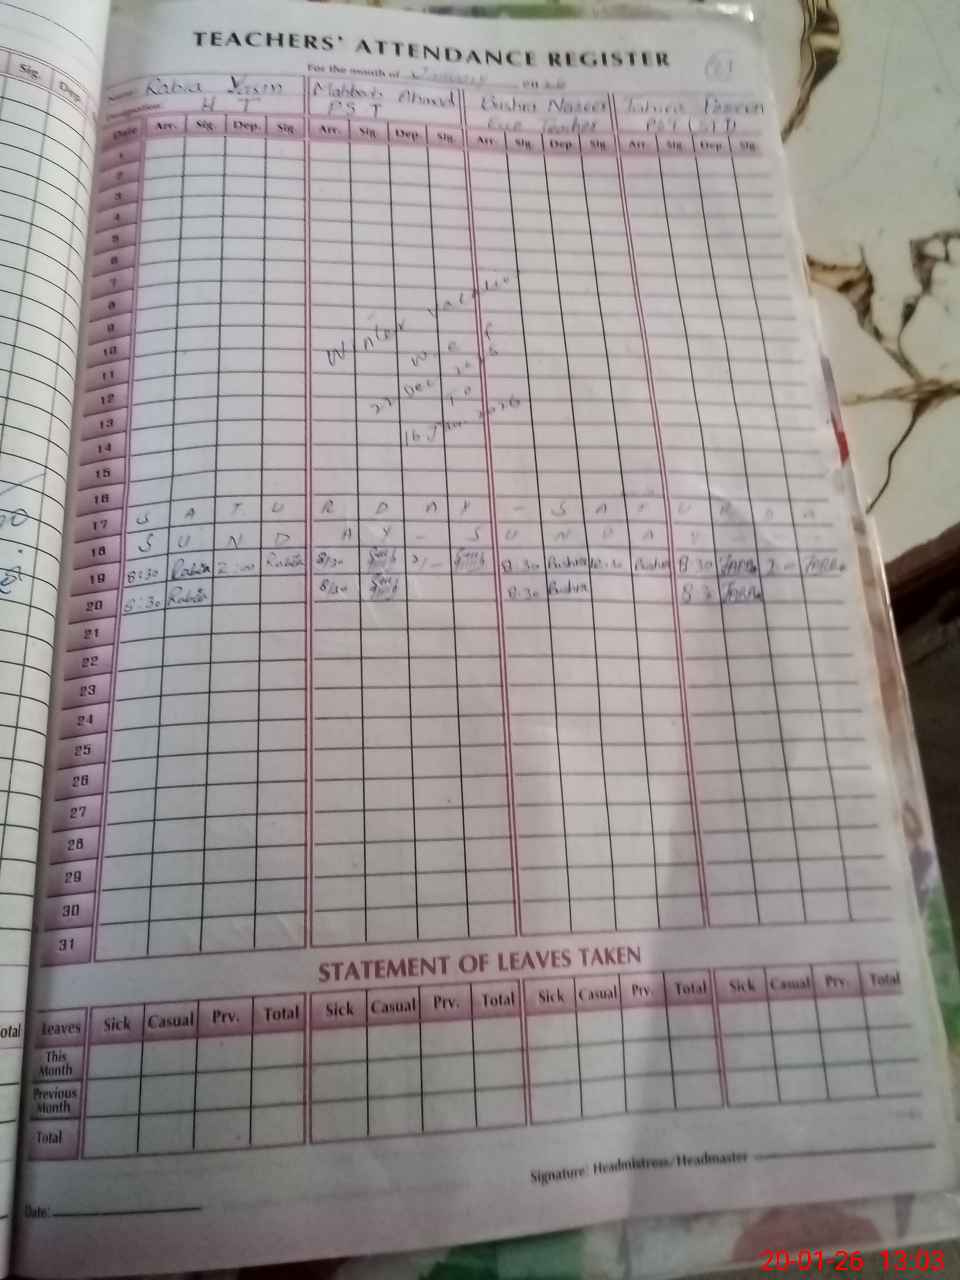 TEACHERS' ATTENDANCE REGISTER
For the month of January
Name: Rabia Yasin Mahboob Ahmad Bushra Nazeer
Designation: H T PST Ece Teacher
Date Arr. Sig. Dep. Sig. Arr. Sig. Dep. Sig. Arr. Sig. Dep. Sig. Arr. Sig. Dep. Sig.
1
2
3
4
5
6
7
8
9
10
11
12
13
14
15
16
Winter Vacation
W e f
22 Dec 2025
To
16 Jan 2026
17 S A T U R D A Y - S A T U R D A
18 S U N D A Y - S U N D A Y - -
19 8:30 Rabia 2:00 Rabia 8/30 2/- 8:30 Bushra Bushra 8:30 2:00
20 8:30 Rabia 8/30 8:30 Bushra
21
22
23
24
25
26
27
28
29
30
31
STATEMENT OF LEAVES TAKEN
Leaves Sick Casual Prv. Total Sick Casual Prv. Total Sick Casual Prv. Total Sick Casual Prv. Total
This Month
Previous Month
Total
Signature: Headmistress/Headmaster
Date:
Sig. Dep.
otal
20-01-26 13:03